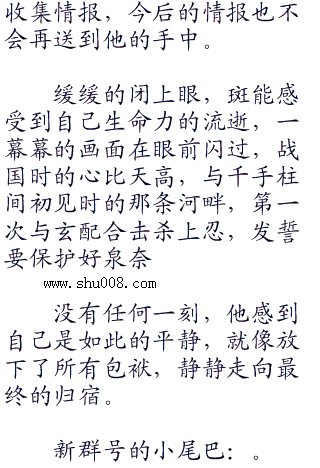 收集情报，今后的情报也不
会再送到他的手中。
缓缓的闭上眼，斑能感
受到自己生命力的流逝，一
幕幕的画面在眼前闪过，战
国时的心比天高，与千手柱
间初见时的那条河畔，第一
次与玄配合击杀上忍，发誓
要保护好泉奈
www.shu008.com
没有任何一刻，他感到
自己是如此的平静，就像放
下了所有包袱，静静走向最
终的归宿。
新群号的小尾巴：。